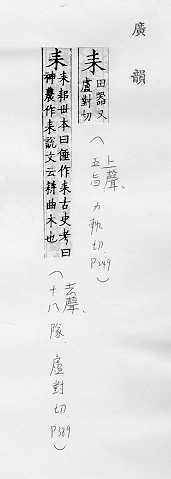 廣韻
耒田器又
盧對切
(上聲、
五旨 力軌切.
P.249)
耒耒耜世本曰倕作耒古史考曰
神農作耒說文云耕曲木也
(去聲、
十八隊. 盧對切
P389)